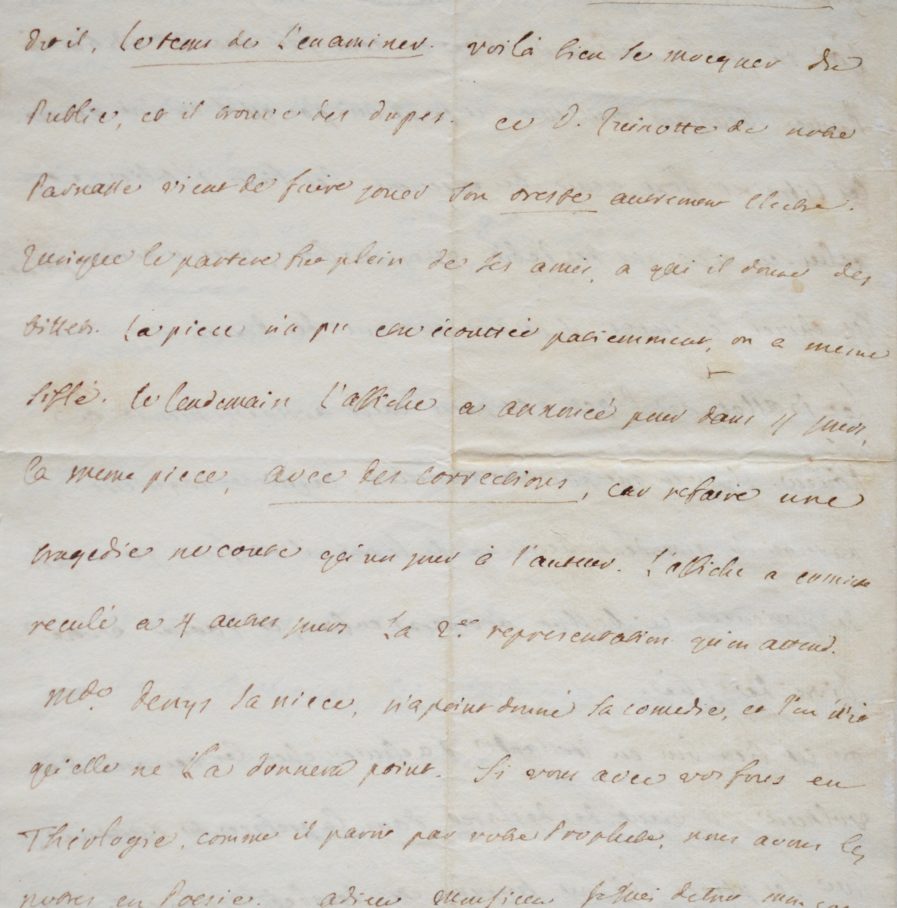 droit, le tems de l'examiner. voilà bien se mocquer du
Public, et il trouve des dupes. ce D. Quixotte de notre
Parnasse vient de faire jouer son oreste autrement Electre.
quoique le parterre fut plein de ses amis, a qui il donne des
billets. La piece n'a pu etre écoutée patiemment, on a même
sifflé. le lendemain l'affiche a annoncé pour dans 4 jours,
la meme piece, avec des corrections, car refaire une
tragedie ne coute qu'un jour à l'auteur. L'affiche a ensuite
reculé a 4 autres jours La 2.e representation qu'on attend.
Mde. denys sa niece, n'a point donné sa comedie, et l'on dit
qu'elle ne la donnera point. Si vous avez vos fous en
Théologie, comme il paroit par votre Prophete, nous avons les
notres en Poesie. adieu monsieur